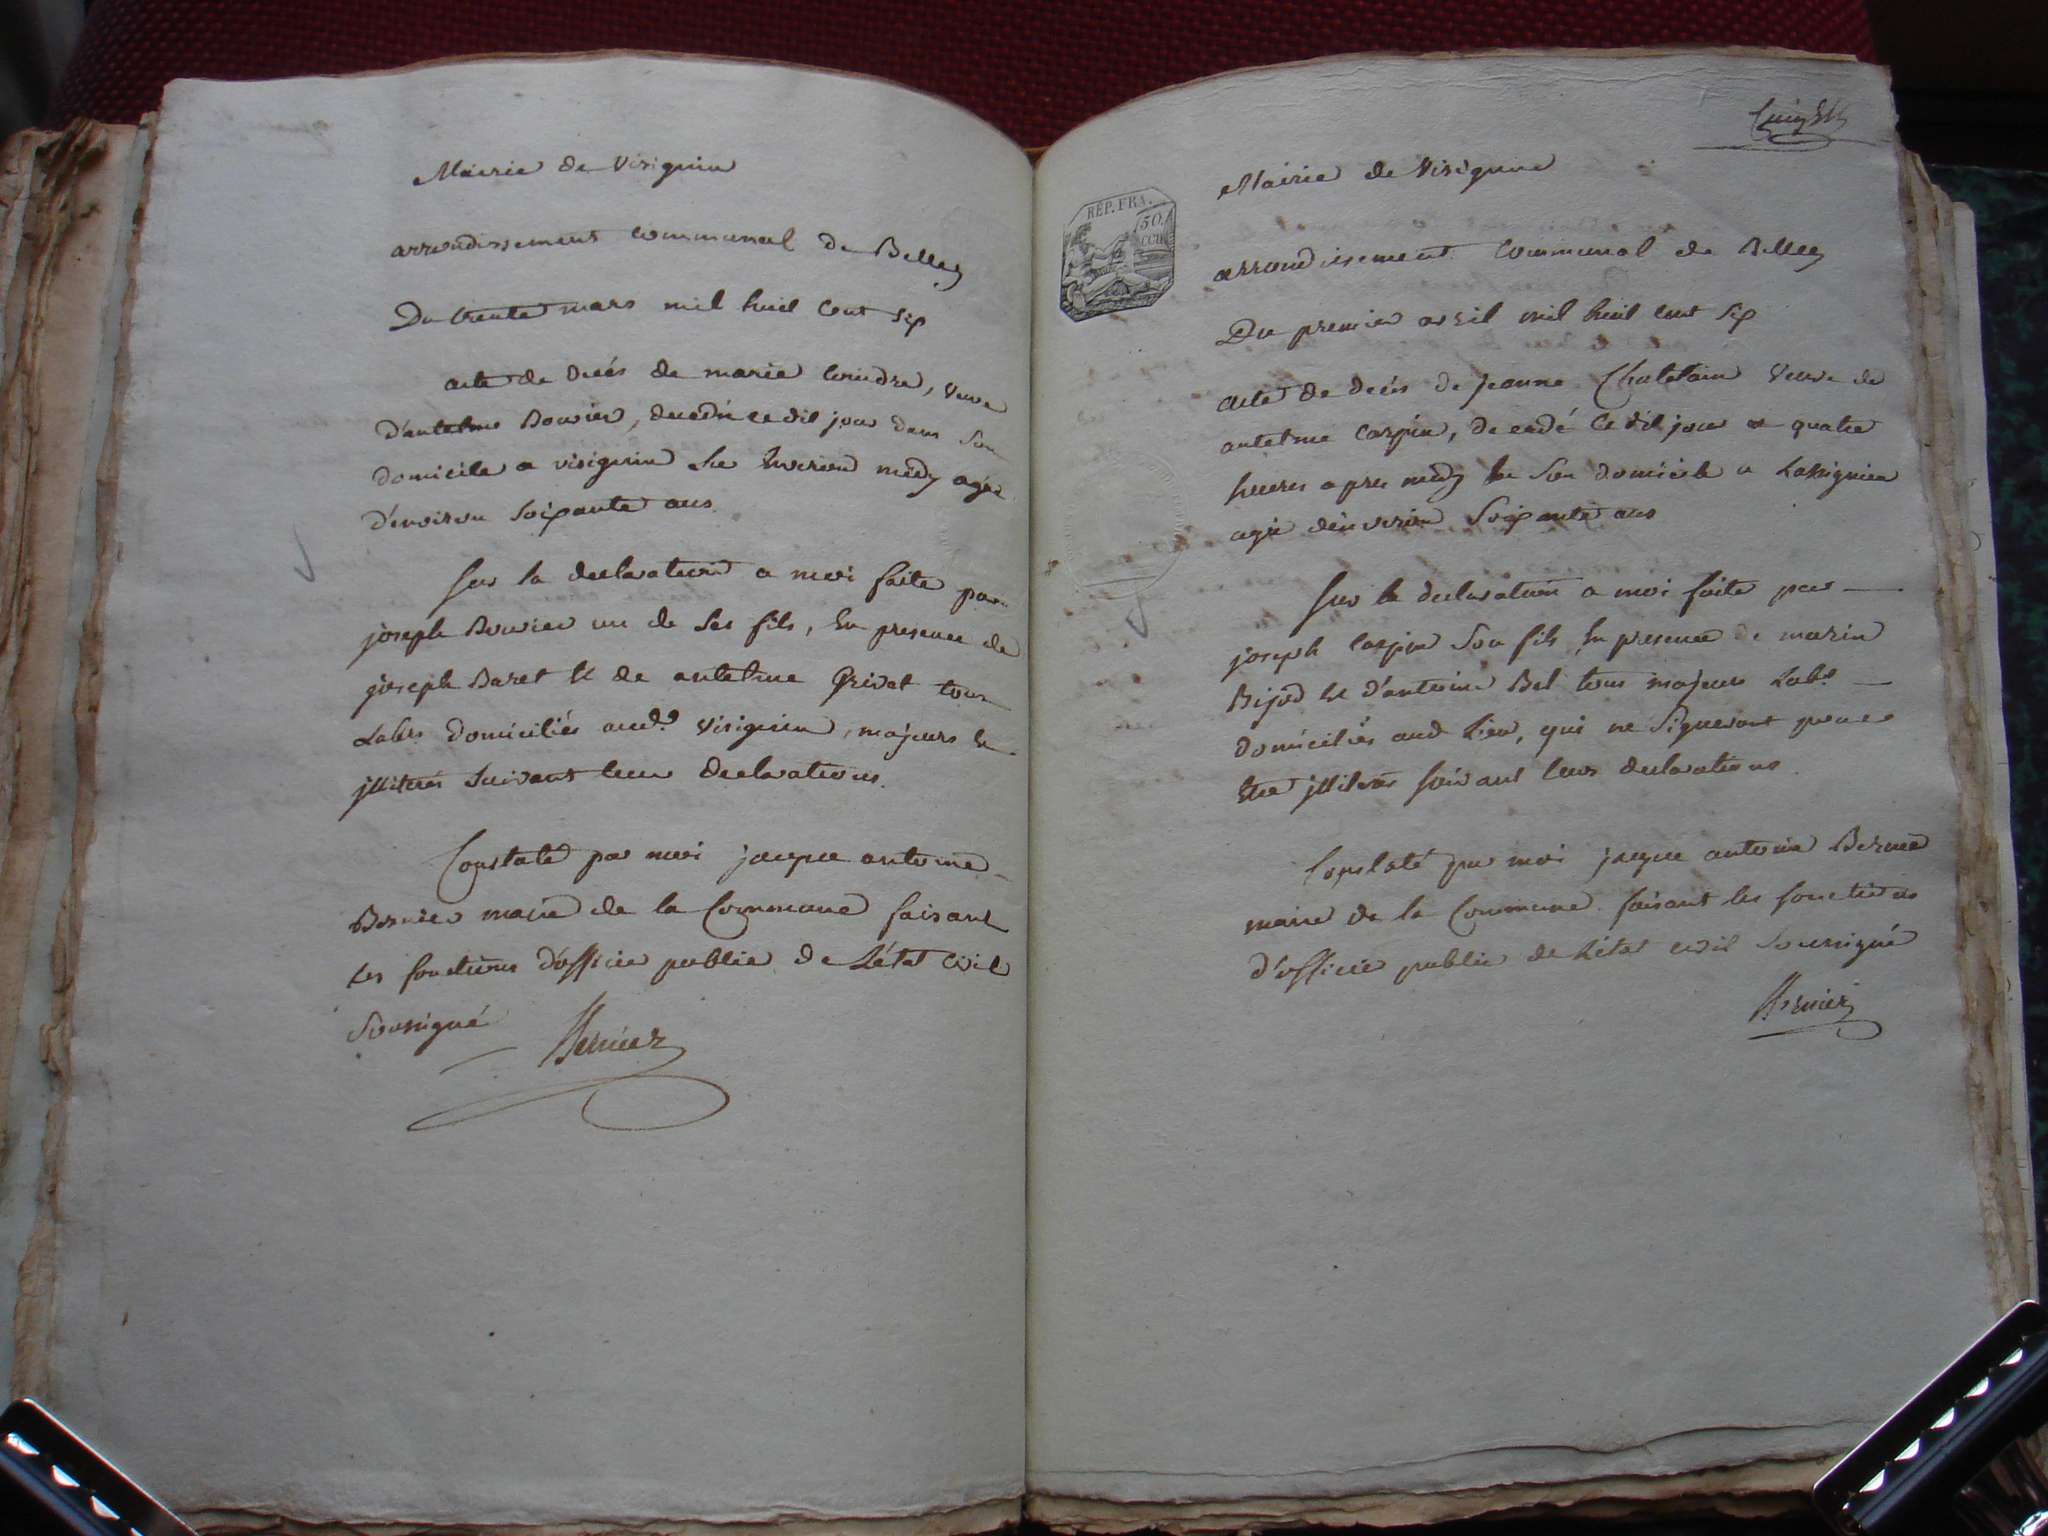 Mairie de Virignin
arrondissement communal de Belley
Du trente mars mil huil cent six
acte de décés de marie , veuve
d'antelme Bouvier, decedée ce dit jour dans son
domicile a virignin midy agée
d'environ soixante ans.
sur la declaration a moi faite par
joseph Bouvier un de ses fils, en presence de
joseph Baret et de antelme Grivat tous
Labrs domiciliés aud. virignin, majeurs et
illiterés suivant leur declarations.
Constaté par moi jacque antoine
Bernier maire de la Commune faisant
les fonctions d'officier public de L'état civil
soussigné Bernier
Mairie de Virignin
arrondissement communal de Belley
REP. FRA.
50.
CCU
Du premier avril mil huil cent six
acte de décés de jeanne Chatelain veuve de
antelme Carpin, decedé ce dit jour a quatre
heures apres midy en son domicile a
agée d'environ soixante ans
sur la declaration a moi faite par
joseph Carpin son fils en presence de marin
Bijod et d'antoine Bel tous majeurs Labrs
domiciliés aud Lieu, qui ne signeront pour
etre illiterés suivant leurs declarations.
Constaté par moi jacque antoine Bernier
maire de la Commune faisant les fonctions
d'officier public de L'état civil soussigné
Bernier